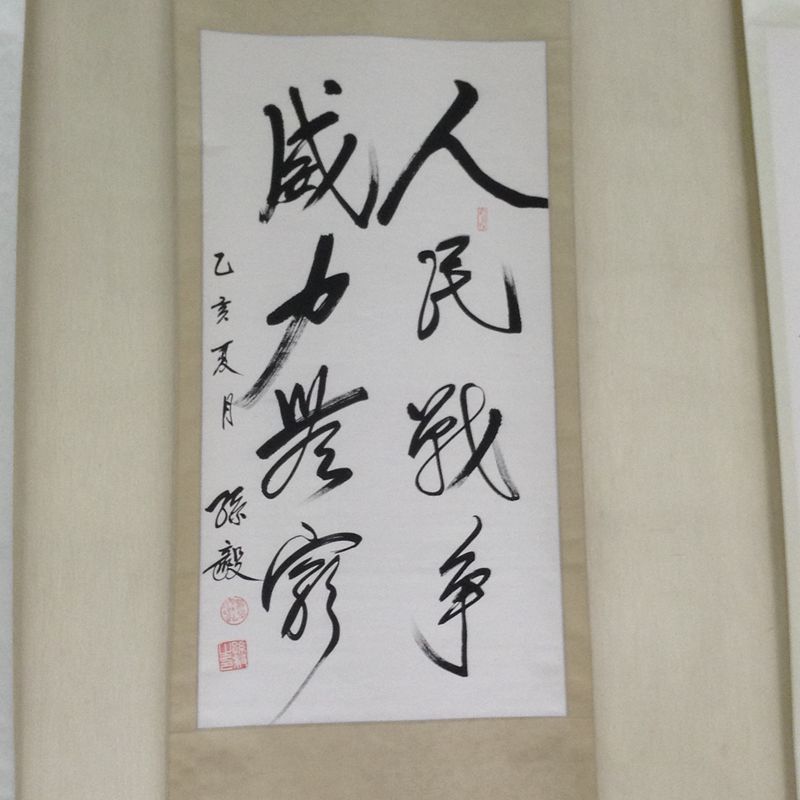 人民戰争
威力無窮
乙亥夏月 孫毅